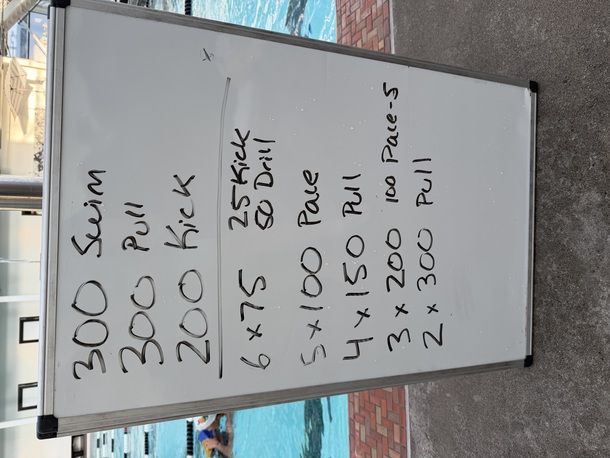 300 Swim
300 Pull
200 Kick
6 x 75 25 Kick
50 Drill
5 x 100 Pace
4 x 150 Pull
3 x 200 100 Pace-5
2 x 300 Pull